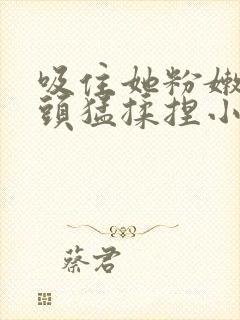 吸住她粉嫩
頭猛揉捏小
蔡君